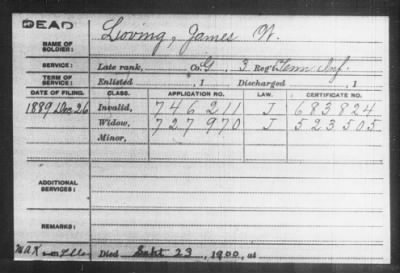 DEAD
NAME OF SOLDIER: Loving, James W.
SERVICE: Late rank, Co. G, 3 Reg't Tenn Inf.
TERM OF SERVICE: Enlisted , 1 Discharged , 1
DATE OF FILING. CLASS. APPLICATION NO. LAW. CERTIFICATE NO.
1889 Dec 26 Invalid, 746211 J 683824
Widow, 727970 J 523505
Minor,
ADDITIONAL SERVICES:
REMARKS:
Died Sept 23, 1900, at